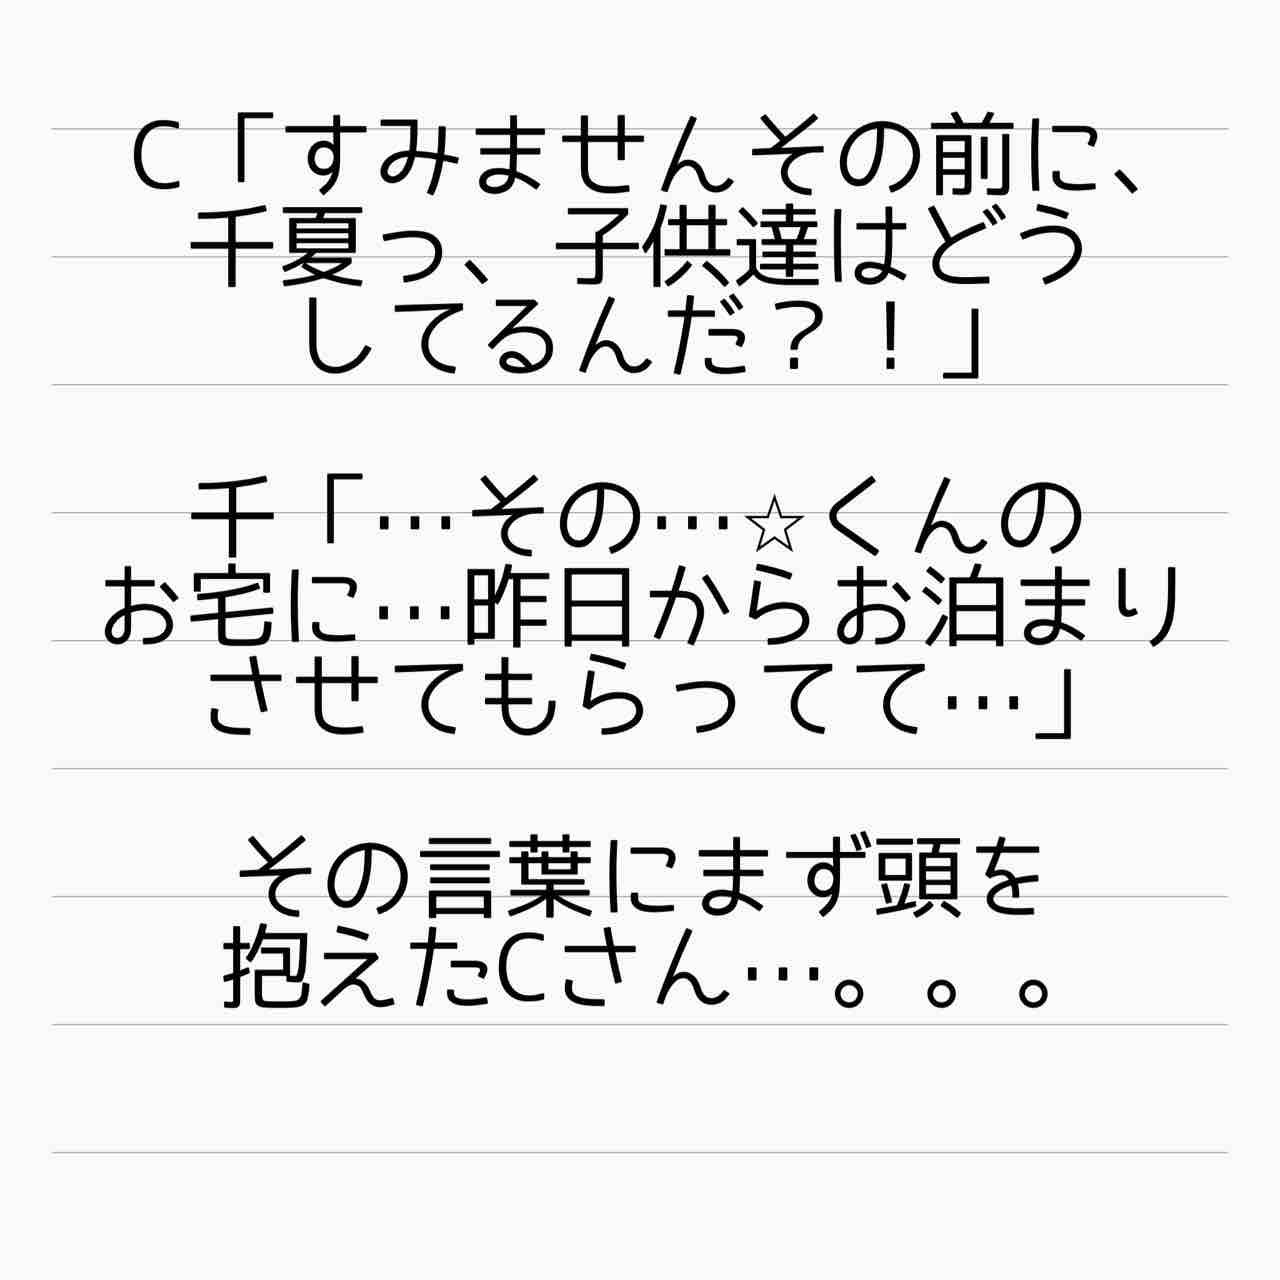 C「すみませんその前に、
千夏っ、子供達はどう
してるんだ？！」
千「…その…☆くんの
お宅に…昨日からお泊まり
させてもらってて…」
その言葉にまず頭を
抱えたCさん…。。。